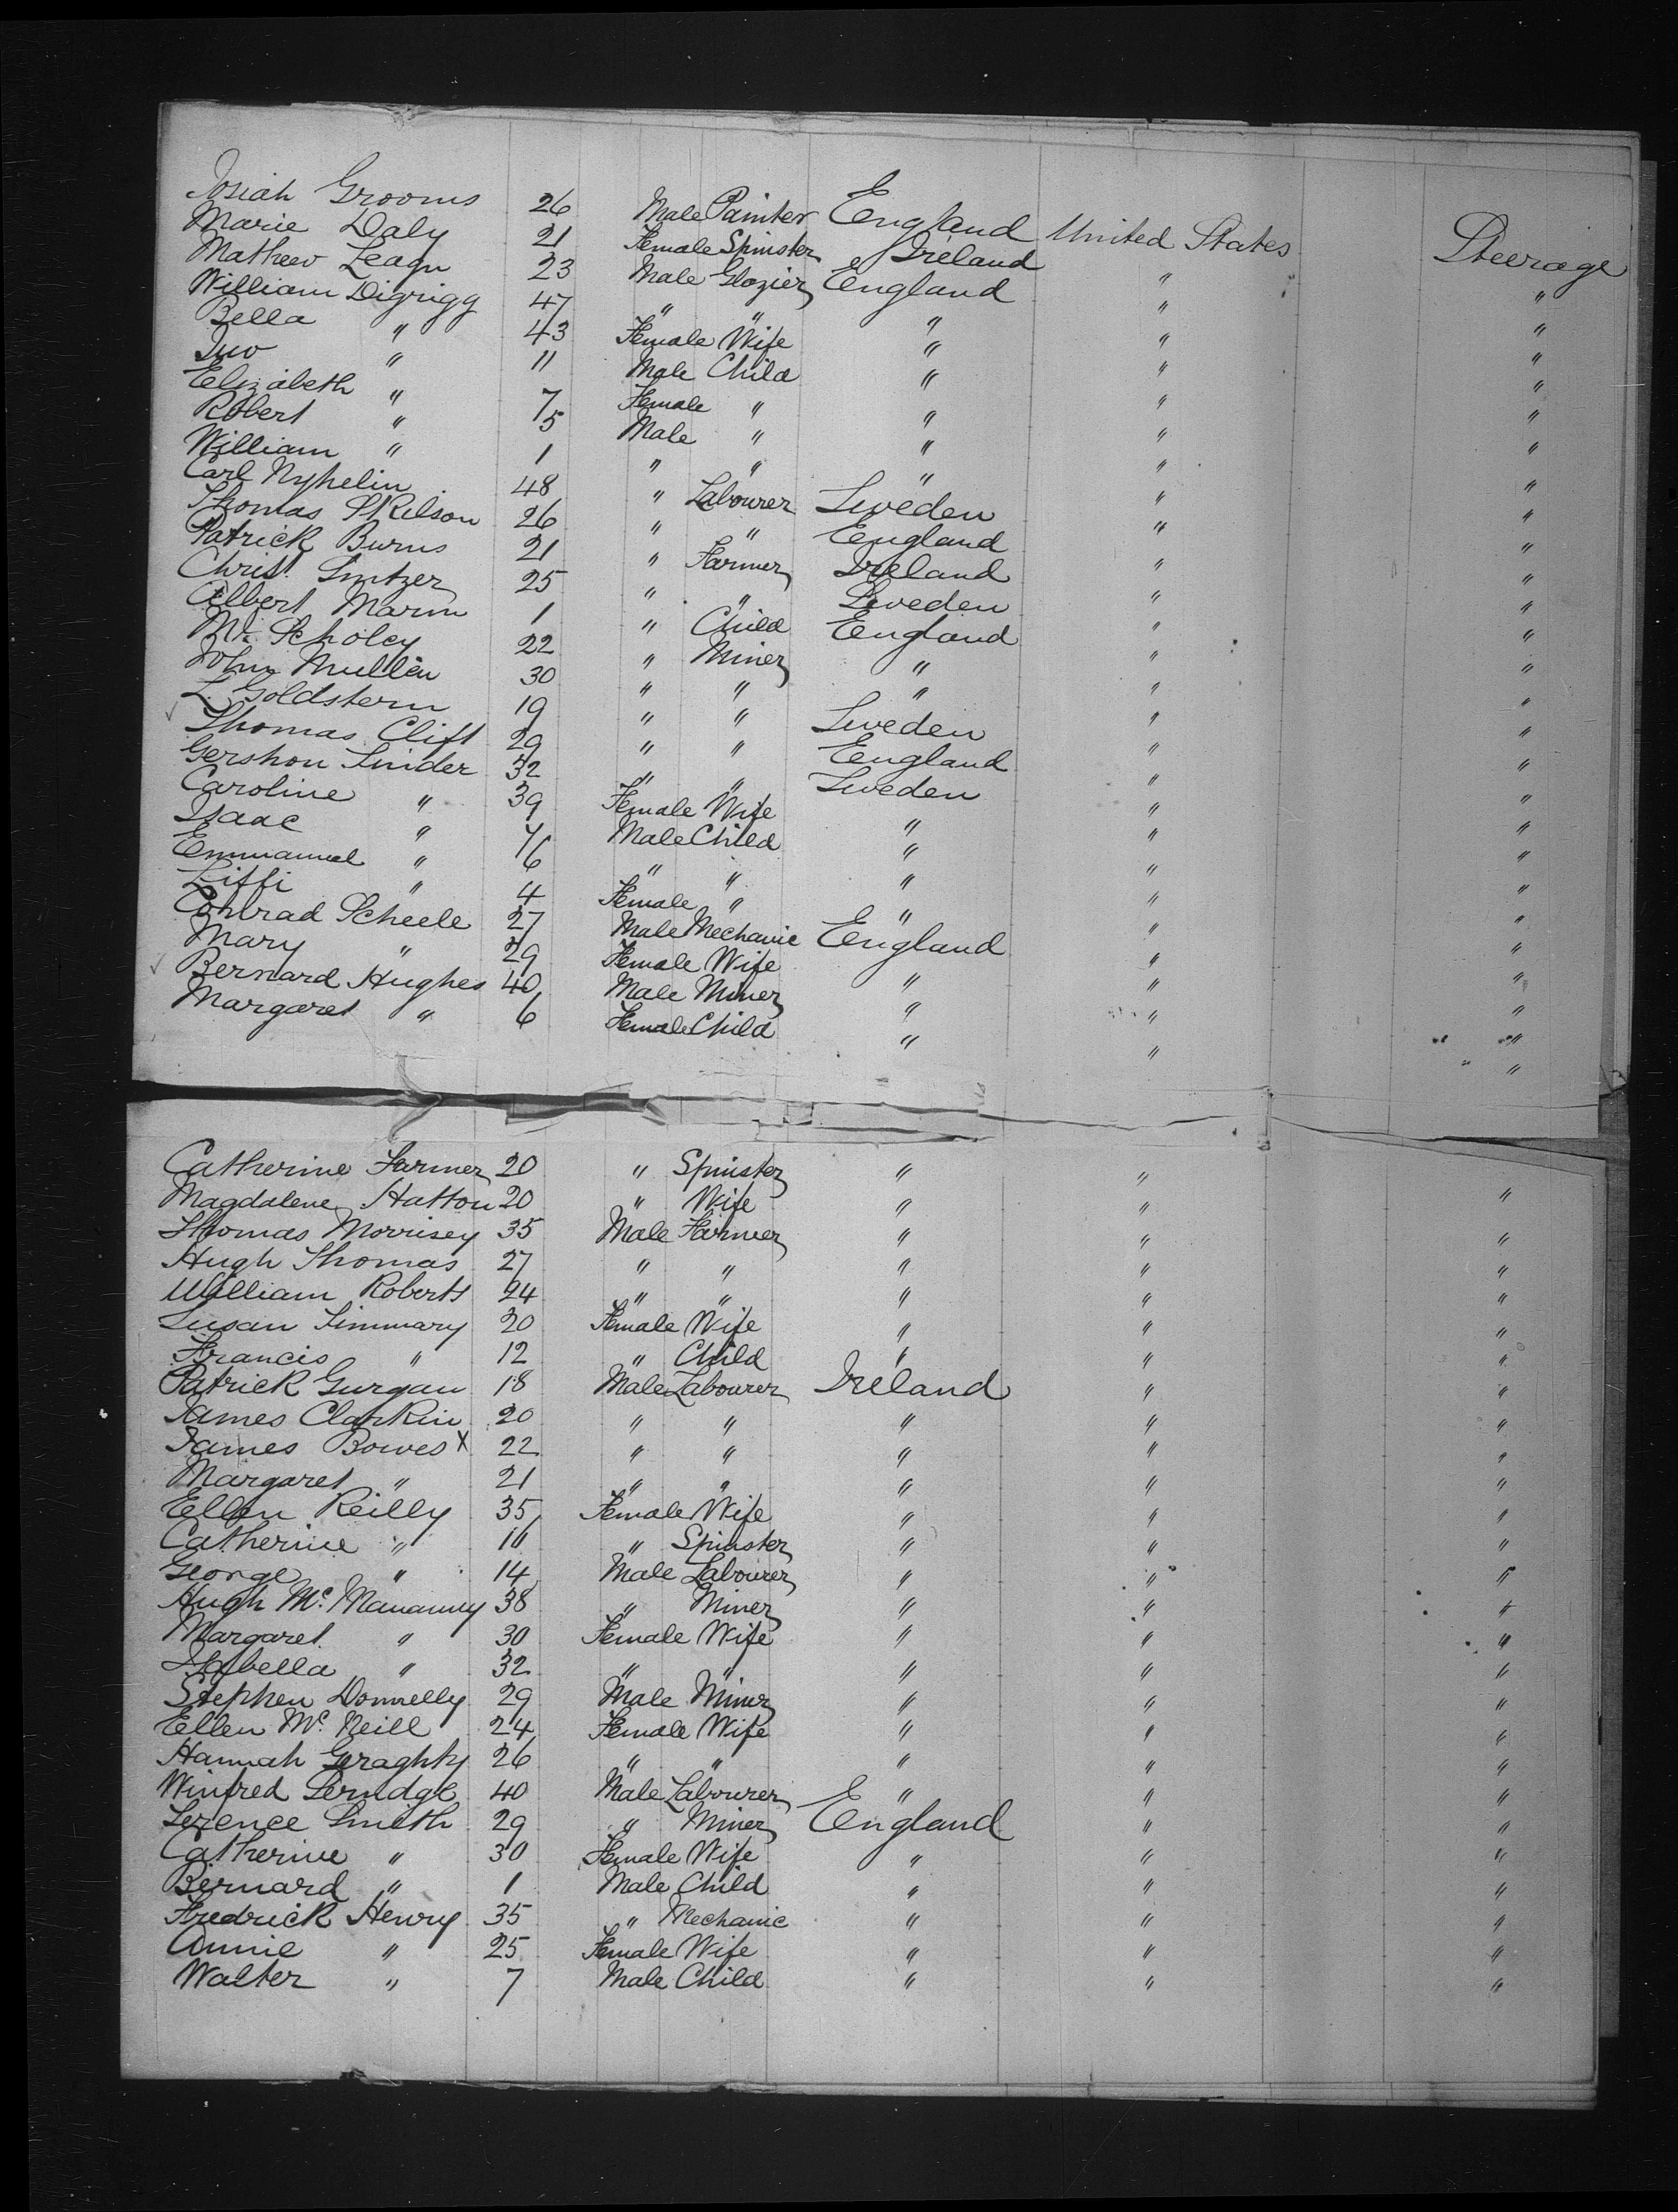 Josiah Grooms 26 Male Painter England United States Steerage
Marie Daly 21 Female Spinster Ireland " "
Mathew Leagn 23 Male Glazier England " "
William Digrigg 47 " " " " "
Bella " 43 Female Wife " " "
" 11 Male Child " " "
Elizabeth " 7 Female " " " "
Robert " 5 Male " " " "
William " 1 " " " " "
Carl Nyhelin 48 " Labourer Sweden " "
Thomas Skilson 26 " " England " "
Patrick Burns 21 " Farmer Ireland " "
Christ. 25 " " Sweden " "
Albert Marin 1 " Child England " "
Scholey 22 " Miner " " "
John Mullin 30 " " " " "
L. Goldstern 19 " " Sweden " "
Thomas Clift 29 " " England " "
Gershon Linder 32 " " Sweden " "
Caroline " 39 Female Wife " " "
Isaac " 7 Male Child " " "
Emmanuel " 6 " " " " "
Liffi " 4 Female " " " "
Conrad Scheele 27 Male Mechanic England " "
Mary " 29 Female Wife " " "
Bernard Hughes 40 Male Miner " " "
Margaret " 6 Female Child " " "
Catherine Farmer 20 " Spinster " " "
Magdalene Hatton 20 " Wife " " "
Thomas Morrisey 35 Male Farmer " " "
Hugh Thomas 27 " " " " "
William Roberts 24 " " " " "
Susan Timmary 20 Female Wife " " "
Francis " 12 " Child " " "
Patrick Gurgan 18 Male Labourer Ireland " "
James Clarkin 20 " " " " "
James Bowes X 22 " " " " "
Margaret " 21 " " " " "
Ellen Reilly 35 Female Wife " " "
Catherine " 16 " Spinster " " "
George " 14 Male Labourer " " "
Hugh Mc. Manamny 38 " Miner " " "
Margaret " 30 Female Wife " " "
Isabella " 32 " " " " "
Stephen Donnelly 29 Male Miner " " "
Ellen Mc. Neill 24 Female Wife " " "
Hannah Geraghty 26 " " " " "
Winfred 40 Male Labourer " " "
Terence Smith 29 " Miner England " "
Catherine " 30 Female Wife " " "
Bernard " 1 Male Child " " "
Fredrick Henry 35 " Mechanic " " "
Annie " 25 Female Wife " " "
Walter " 7 Male Child " " "